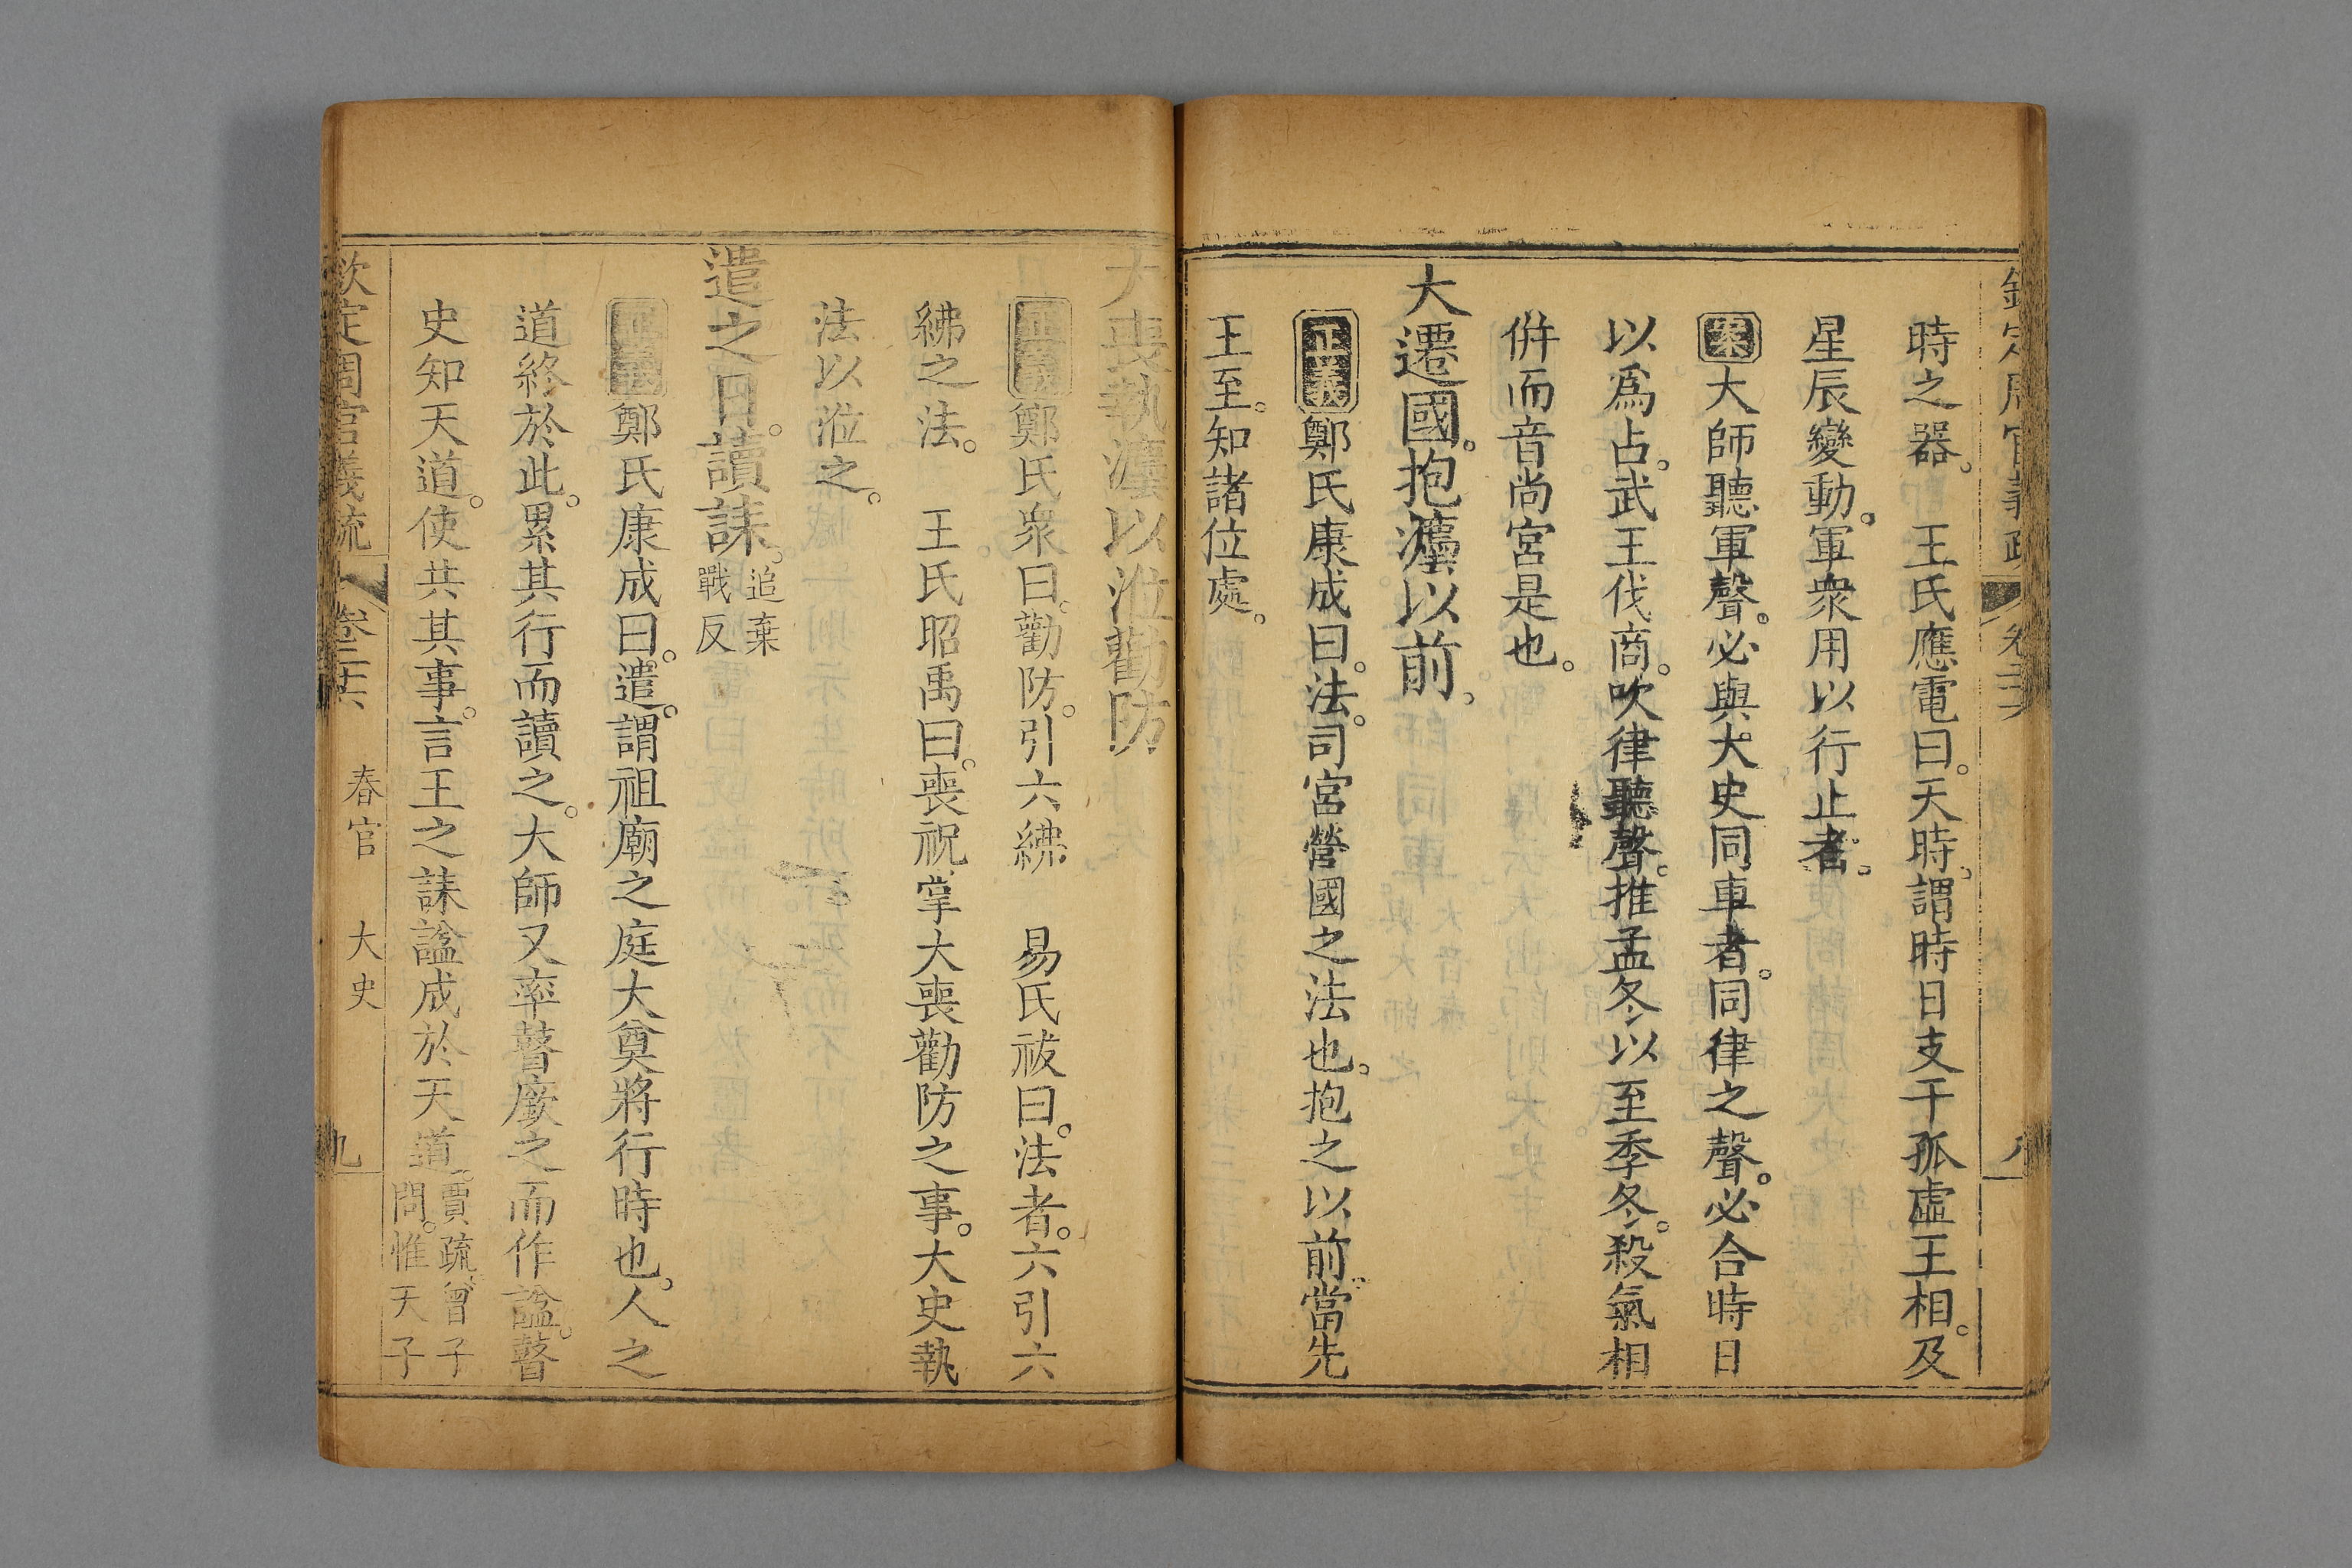 時之器。 王氏應電曰。天時。謂時日支干孤虛王相。及
星辰變動。軍衆用以行止者。
案大師聽軍聲。必與大史同車者。同律之聲。必合時日
以爲占。武王伐商。吹律聽聲。推孟冬以至季冬。殺氣相
併而音尚宮是也。
大遷國。抱灋以前。
正義鄭氏康成曰。法。司宮營國之法也。抱之以前。當先
王至。知諸位處。
大喪執灋以涖勸防
正義鄭氏衆曰。勸防。引六紼 易氏祓曰。法者。六引六
紼之法。 王氏昭禹曰。喪祝掌大喪勸防之事。大史執
法以涖之。
遣之日。讀誄。追棄
戰反
正義鄭氏康成曰。遣。謂祖廟之庭大奠將行時也。人之
道終於此。累其行而讀之。大師又率瞽廞之而作諡。瞽
史知天道。使共其事。言王之誄諡成於天道。賈疏。曾子
問。惟天子
欽定周官義疏 卷二十六 春官 大史 九